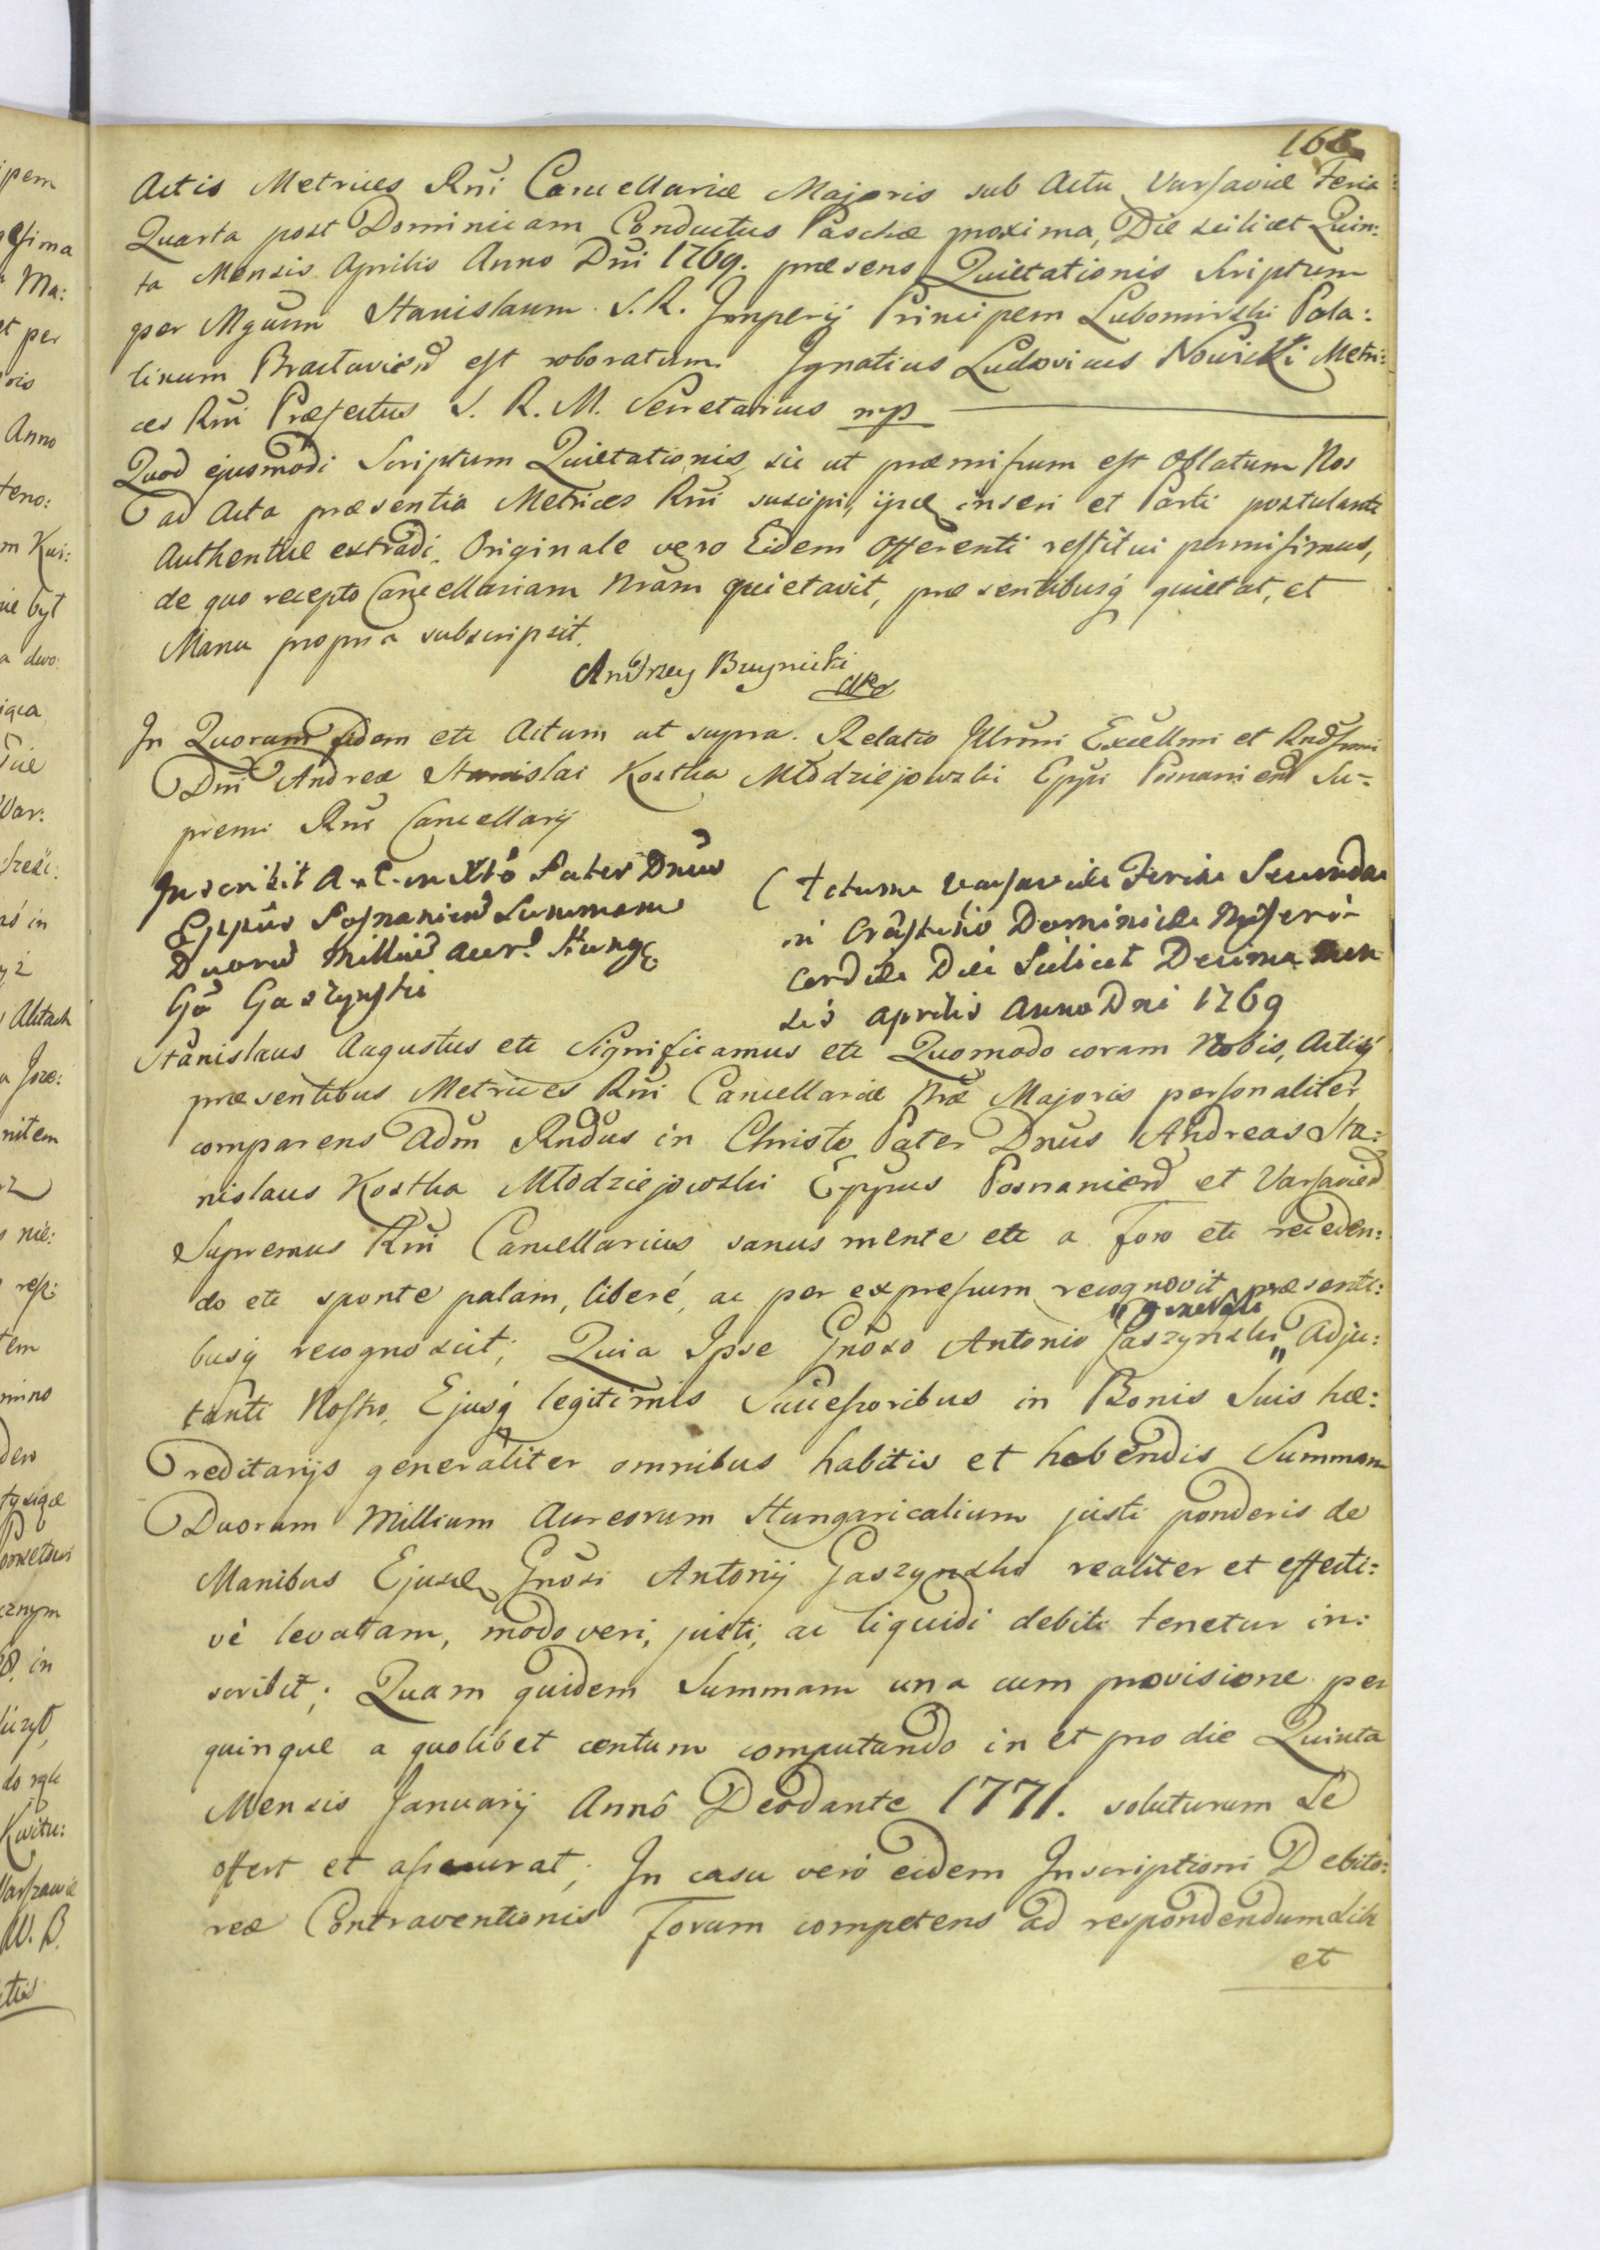 168
Actis Metrices Rñi Cancellariæ Majoris sub Actu Varsaviæ Feria
Quarta post Dominicam Conductus Paschæ proxima, Die scilicet Quin:
ta Mensis Aprilis Anno Dñi 1769. præsens Quietationis Scriptum
per Mgcum Stanislaum S. R. Imperij Principem Lubomirski Pala:
tinum Braclavien est roboratum. Ignatius Ludovicus Nowicki Metri:
ces Rñi Præfectus S. R. M. Secretarius mp
Quod ejusmodi Scriptum Quietationis, sic ut præmissum est oblatum Nos
ad Acta præsentia Metrices Rñi suscipi, ijsq inseri et Parti postulanti
Authentice extradi, Originale vero Eidem Offerenti restitui permisimus,
de quo recepto Cancellariam Nram quietavit, præsentibusq quietat, et
Manu propria subscripsit.
Andrzey Buynicki
In Quorum fidem etc Actum ut supra. Relatio Illrmi Excellmi et Rndssmi
Dñi Andreæ Stanislai Kostka Młodziejowski Eppi Posnanien Su-
premi Rñi Cancellarij
Inscribit in Xto Pater Dnus
Eppus Posnanien Summam
Duoru Milliu aur. Hung
Gō Gaszynski
Actum Varsaviæ Feria Secunda
in Crastino Dominicæ Miseri-
cordiæ Die Scilicet Decima Men
sis Aprilis Anno Dni 1769
Stanislaus Augustus etc Significamus etc Quomodo coram Nobis, Actisq
præsentibus Metrices Rñi Cancellariæ Nræ Majoris personaliter
comparens Adm Rndus in Christo Pater Dnus Andreas Sta:
nislaus Kostka Młodziejowski Eppus Posnanien et Varsavien
Supremus Rñi Cancellarius, sanus mente etc a Foro etc receden:
do etc sponte palam, liberé, ac per expressum recognovit præsenti:
busq recognoscit; Quia Ipse Gnōso Antonio Gaszynski " Generali " Adju:
tanti Nostro, Ejusq legitimis Successoribus in Bonis Suis hæ:
reditarijs generaliter omnibus habitis et habendis Summam
Duorum Millium Aureorum Hungaricalium justi ponderis de
Manibus Ejusd Gnōsi Antonij Gaszynski realiter et effecti:
vè levatam, modo veri, justi, ac liquidi debiti tenetur in:
scribit; Quam quidem Summam una cum provisione per
quinque a quolibet centum computando in et pro die Quinta
Mensis Januarij Annô Deodante 1771. soluturum Se
offert et assecurat; In casu verò eidem Inscriptioni Debito:
reæ Contraventionis Forum competens ad respondendum sibi
et